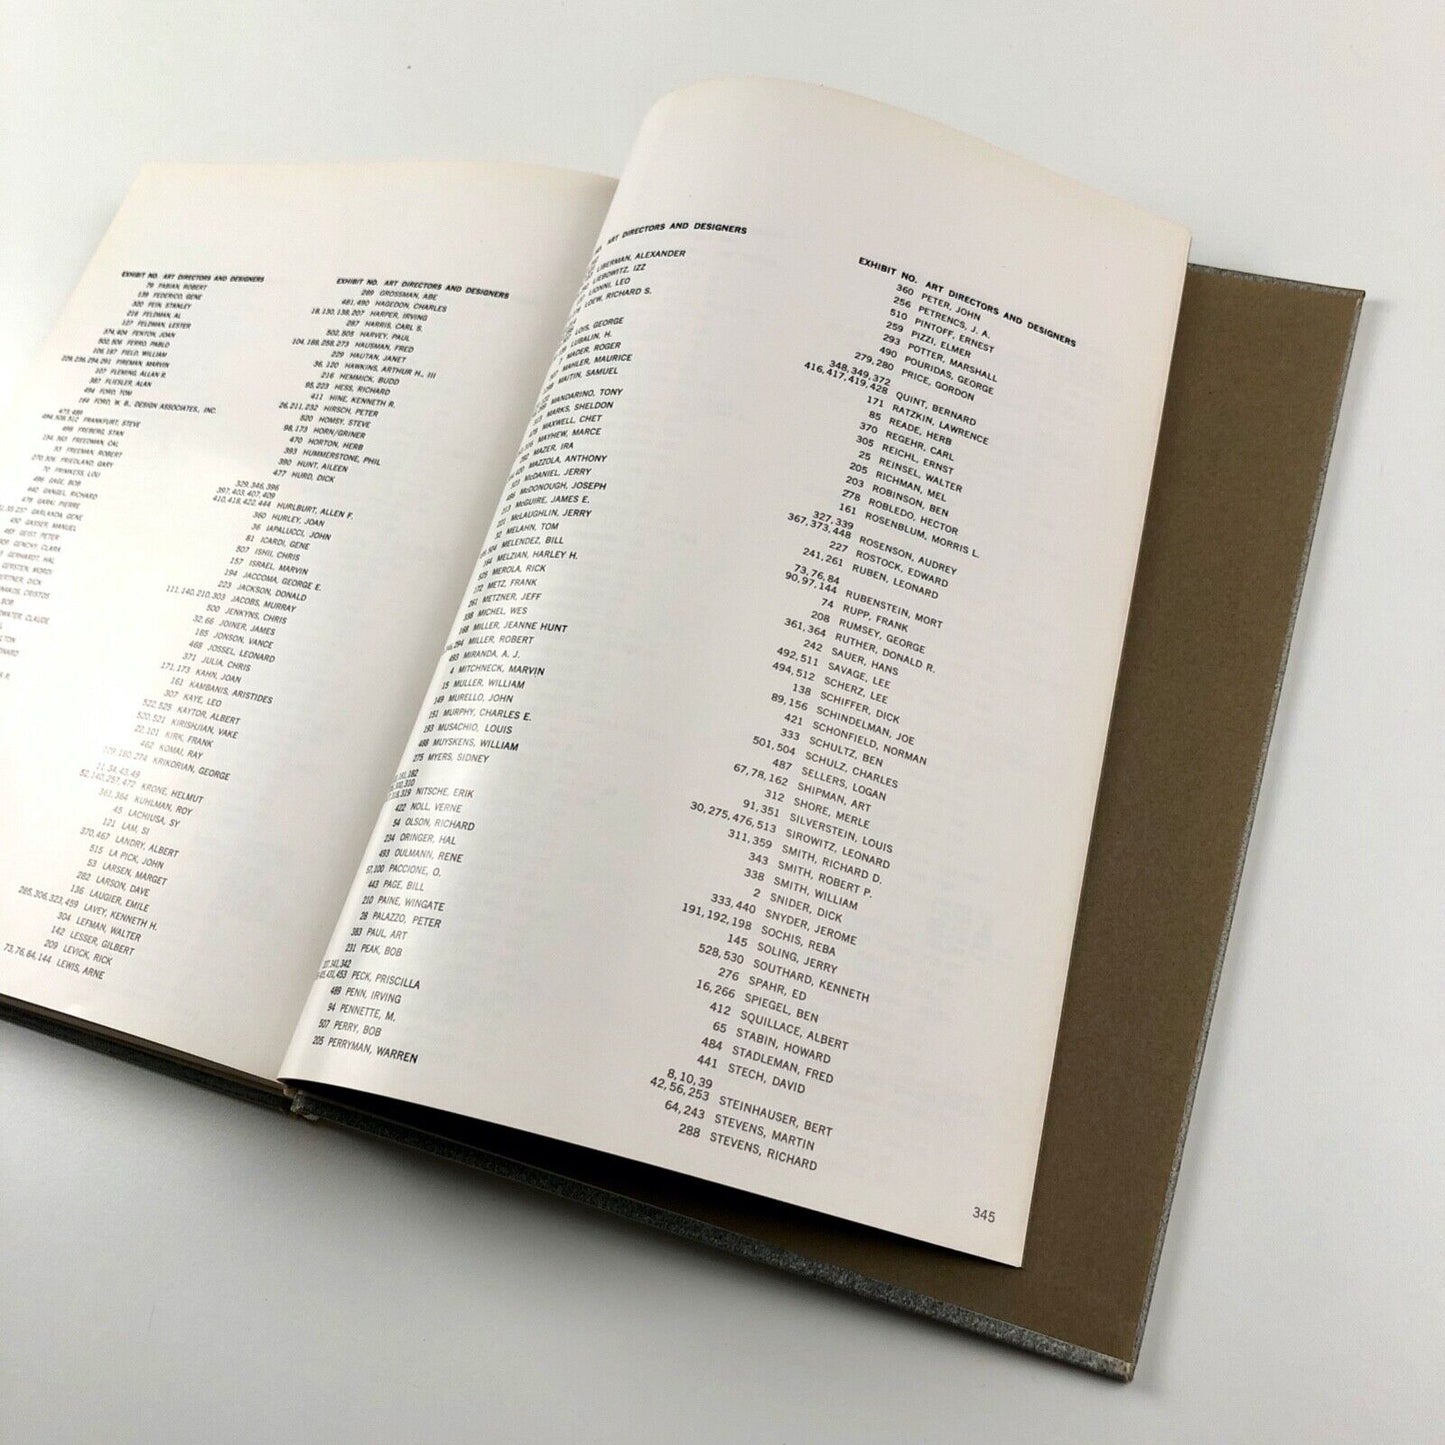 EXHIBIT NO. ART DIRECTORS AND DESIGNERS
79 FABIAN, ROBERT
139 FEDERICO, GENE
300 FEIN, STANLEY
216 FELDMAN, AL
127 FELDMAN, LESTER
374,404 FENTON, JOAN
502,506 FERRO, PABLO
106,187 FIELD, WILLIAM
229,236,294,291 FIREMAN, MARVIN
107 FLEMING, ALLAN R.
387 FLIESLER, ALAN
494 FORD, TOM
164 FORD, W. B., DESIGN ASSOCIATES, INC.
473,489
494,508,512 FRANKFURT, STEVE
499 FREBERG, STAN
194,503 FREEDMAN, CAL
53 FREEMAN, ROBERT
270,306 FRIEDLAND, GARY
70 FRIMKESS, LOU
496 GAGE, BOB
442 GANGEL, RICHARD
479 GARAI, PIERRE
GARLANDA, GENE
492 GASSER, MANUEL
497 GEIST, PETER
GENCHY, CLARA
GERHARDT, HAL
GERSTEN, WORDI
DICK
BOB
CLAUDE
EXHIBIT NO. ART DIRECTORS AND DESIGNERS
289 GROSSMAN, ABE
481,490 HAGEDON, CHARLES
18,130,138,207 HARPER, IRVING
287 HARRIS, CARL S.
502,505 HARVEY, PAUL
104,188,258,273 HAUSMAN, FRED
229 HAUTAN, JANET
36,120 HAWKINS, ARTHUR H., III
216 HEMMICK, BUDD
95,223 HESS, RICHARD
411 HINE, KENNETH R.
26,211,232 HIRSCH, PETER
520 HOMSY, STEVE
98,173 HORN/GRINER
470 HORTON, HERB
393 HUMMERSTONE, PHIL
390 HUNT, AILEEN
477 HURD, DICK
329,346,396
397,403,407,409
410,418,422,444 HURLBURT, ALLEN F.
360 HURLEY, JOAN
36 IAPALUCCI, JOHN
81 ICARDI, GENE
507 ISHII, CHRIS
157 ISRAEL, MARVIN
194 JACCOMA, GEORGE E.
223 JACKSON, DONALD
111,140,210,303 JACOBS, MURRAY
500 JENKYNS, CHRIS
32,66 JOINER, JAMES
185 JONSON, VANCE
468 JOSSEL, LEONARD
371 JULIA, CHRIS
171,173 KAHN, JOAN
161 KAMBANIS, ARISTIDES
307 KAYE, LEO
522,525 KAYTOR, ALBERT
520,521 KIRISHJIAN, VAKE
22,101 KIRK, FRANK
462 KOMAI, RAY
109,180,274 KRIKORIAN, GEORGE
11,34,43,49
52,140,257,472 KRONE, HELMUT
361,364 KUHLMAN, ROY
45 LACHIUSA, SY
121 LAM, SI
370,467 LANDRY, ALBERT
515 LA PICK, JOHN
53 LARSEN, MARGET
282 LARSON, DAVE
136 LAUGIER, EMILE
285,306,323,459 LAVEY, KENNETH H.
304 LEFMAN, WALTER
142 LESSER, GILBERT
209 LEVICK, RICK
73,76,84,144 LEWIS, ARNE
ART DIRECTORS AND DESIGNERS
LIBERMAN, ALEXANDER
LIEBOWITZ, IZZ
LIONNI, LEO
LOEW, RICHARD S.
LOIS, GEORGE
LUBALIN, H.
MADER, ROGER
MAHLER, MAURICE
MAITIN, SAMUEL
MANDARINO, TONY
MARKS, SHELDON
MAXWELL, CHET
MAYHEW, MARCE
MAZER, IRA
MAZZOLA, ANTHONY
McDANIEL, JERRY
McDONOUGH, JOSEPH
McGUIRE, JAMES E.
McLAUGHLIN, JERRY
32 MELAHN, TOM
MELENDEZ, BILL
194 MELZIAN, HARLEY H.
525 MEROLA, RICK
172 METZ, FRANK
261 METZNER, JEFF
338 MICHEL, WES
168 MILLER, JEANNE HUNT
MILLER, ROBERT
493 MIRANDA, A. J.
4 MITCHNECK, MARVIN
15 MULLER, WILLIAM
149 MURELLO, JOHN
151 MURPHY, CHARLES E.
193 MUSACHIO, LOUIS
488 MUYSKENS, WILLIAM
275 MYERS, SIDNEY
NITSCHE, ERIK
422 NOLL, VERNE
54 OLSON, RICHARD
234 ORINGER, HAL
493 OULMANN, RENE
57,100 PACCIONE, O.
443 PAGE, BILL
210 PAINE, WINGATE
28 PALAZZO, PETER
383 PAUL, ART
231 PEAK, BOB
PECK, PRISCILLA
489 PENN, IRVING
94 PENNETTE, M.
507 PERRY, BOB
205 PERRYMAN, WARREN
EXHIBIT NO. ART DIRECTORS AND DESIGNERS
360 PETER, JOHN
256 PETRENCS, J. A.
510 PINTOFF, ERNEST
259 PIZZI, ELMER
293 POTTER, MARSHALL
490 POURIDAS, GEORGE
279,280 PRICE, GORDON
348,349,372
416,417,419,428 QUINT, BERNARD
171 RATZKIN, LAWRENCE
85 READE, HERB
370 REGEHR, CARL
305 REICHL, ERNST
25 REINSEL, WALTER
205 RICHMAN, MEL
203 ROBINSON, BEN
278 ROBLEDO, HECTOR
161 ROSENBLUM, MORRIS L.
327,339
367,373,448 ROSENSON, AUDREY
227 ROSTOCK, EDWARD
241,261 RUBEN, LEONARD
73,76,84
90,97,144 RUBENSTEIN, MORT
74 RUPP, FRANK
208 RUMSEY, GEORGE
361,364 RUTHER, DONALD R.
242 SAUER, HANS
492,511 SAVAGE, LEE
494,512 SCHERZ, LEE
138 SCHIFFER, DICK
89,156 SCHINDELMAN, JOE
421 SCHONFIELD, NORMAN
333 SCHULTZ, BEN
501,504 SCHULZ, CHARLES
487 SELLERS, LOGAN
67,78,162 SHIPMAN, ART
312 SHORE, MERLE
91,351 SILVERSTEIN, LOUIS
30,275,476,513 SIROWITZ, LEONARD
311,359 SMITH, RICHARD D.
343 SMITH, ROBERT P.
338 SMITH, WILLIAM
2 SNIDER, DICK
333,440 SNYDER, JEROME
191,192,198 SOCHIS, REBA
145 SOLING, JERRY
528,530 SOUTHARD, KENNETH
276 SPAHR, ED
16,266 SPIEGEL, BEN
412 SQUILLACE, ALBERT
65 STABIN, HOWARD
484 STADLEMAN, FRED
441 STECH, DAVID
8,10,39
42,56,253 STEINHAUSER, BERT
64,243 STEVENS, MARTIN
288 STEVENS, RICHARD
345